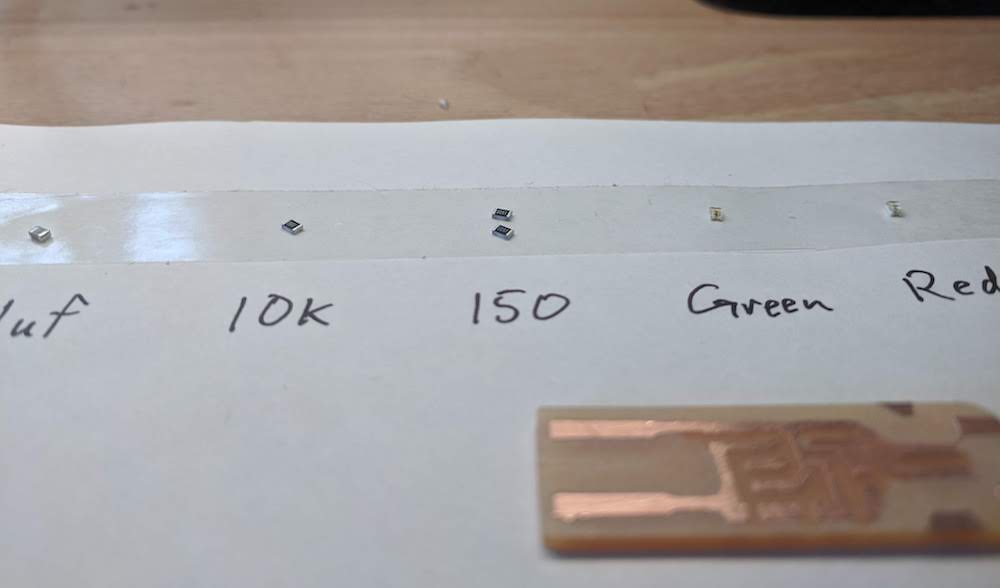 1uf 10K 150 Green Red